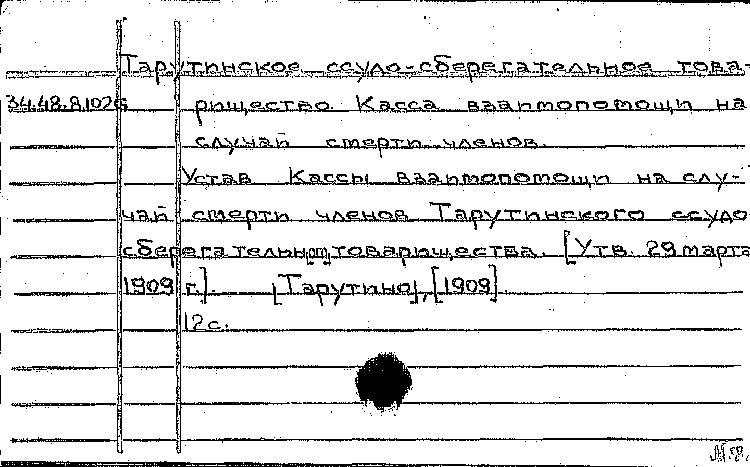 Тарутинское ссудо-сберегательное това-
34.48.8.1026 рищество Касса взаимопомощи на
случай смерти членов.
Устав Кассы взаимопомощи на слу-
чай смерти членов Тарутинского ссудо
сберегательн[ого] товарищества. [Утв. 29 марта
1909 г.]. [Тарутино], [1909].
12 с.